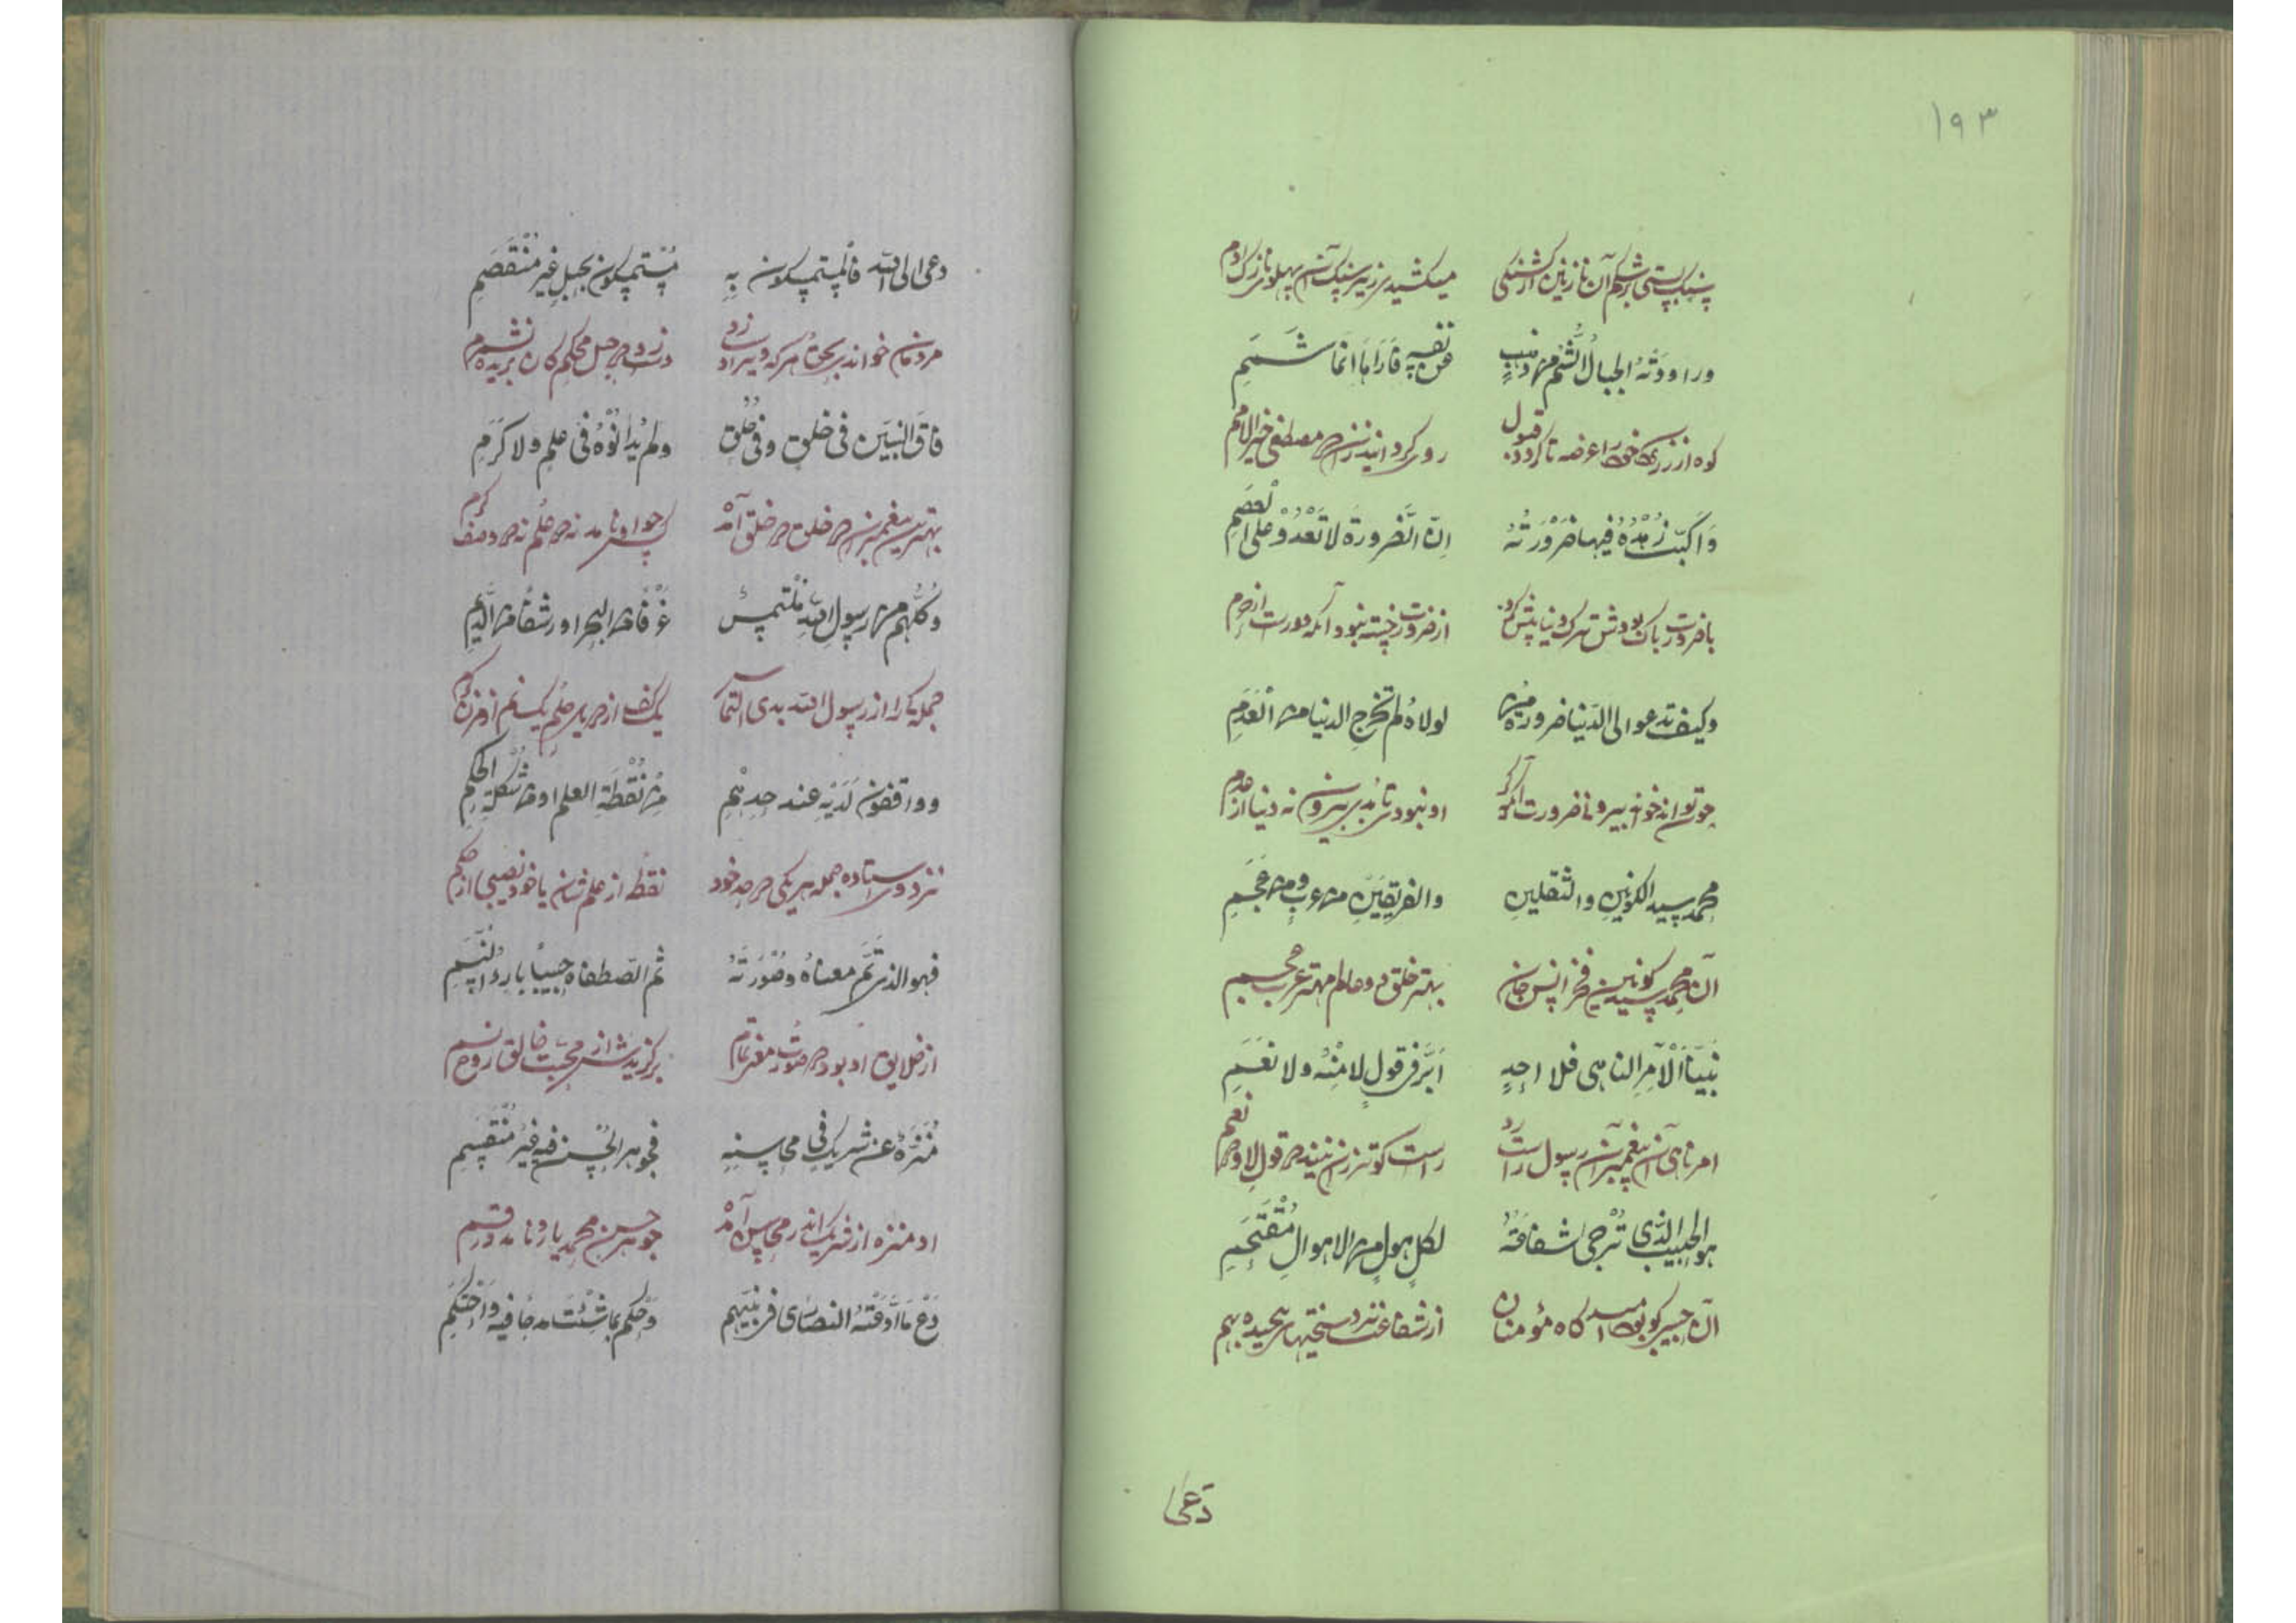 ١٩٣
سنک بستی بر شکم آن نازنین از کشنکی میکشیدی زیر سنک آن پهلو نازک ادم
وراودته الجبال الشم من ذهب عن نفسه فاراها ایما شمم
کوه از زر خود را عرضه تا کرد قبول روی کردانید زان مصطفی خیر الامم
وَاکدت زُهده فیها ضرورته اِنّ الضرورة لا تَعْدُوْ علی العِصَمِ
با ضرورت ترک دنیا پیش کرد از ضرورت نبود آنکه دورست از حرم
وکیف تدعو الی الدنیا ضرورة من لولاهُ لم تَخرج الدنیا من العَدَمِ
چون تواند خواند بیرون ضرورت آنکه کر او نبودی نامدی بیرون نه دنیا از عدم
محمد سید الکونین والثقلین والفریقین من عرب ومن عجم
آن محمد سید کونین فخر انس و جان بهتر خلق دو عالم مهتر عرب و عجم
نبیّنا الآمر الناهی فلا احدٍ اَبَرّ فی قول لا مِنْهُ ولا نَعَمِ
امر ناهی آن پیغمبر آن رسول راست رو راست کوتر زان نبیند در قول لا و نعم
هو الحبیب الذی تُرجی شفاعَتهُ لکل هولٍ من الاهوالِ مُقْتَحَمِ
آن حبیب کو بود امید کاه مؤمنان از شفاعت نزد سختیهای پیچیده بهم
دَعَی
دعی الی الله فالمستمسکون بِهِ مُستمسکون بحبلٍ غیر مُنْقَصِمِ
مردمان خواند بحق هر که ویرا دست زد دست زد در حبل محکم کان بریده نشد ز هم
فاقَ النبیّین فی خلق وفی خُلُق ولم یُدانُوْهُ فی علمٍ ولا کَرَمِ
بهترین پیغمبران در خلق در خلق آمد کس چو او نامد نه در علم نه در وصف کرم
وکُلُّهم من رسول الله مُلْتَمِسٌ غَرْفًا من البحر او رشفًا من الدِّیَمِ
جمله را از رسول الله بدی التماس یک کف از دریای علم یک نم از کرم
وواقفون لَدَیْهِ عند حدّهم مِن نُقْطَةِ العلم او من شکلة الحِکَمِ
نزد وی استاده جمله هر یکی در حد خود نقطه از علم شان یا خود نصیبی از حکم
فهو الذی تمَّ معناهُ وصُورَتهُ ثم اصطفاه حبیبًا بارئُ النَّسَمِ
از خلایق او بود در صورت و معنی تمام برکزیدش از محبت خالق روح نسم
مُنَزَّهٌ عن شریکٍ فی محاسنِه فجوهر الحُسن فیه غیرُ مُنْقَسِمِ
او منزه از شریک اندر محاسن آمد جوهر حسن محمد یا ر نامد در قسم
دَعْ ما ادَّعَتْهُ النصاری فی نبیّهم وَحکم بما شِئْتَ مدحًا فیه وَاحْتَکِمِ